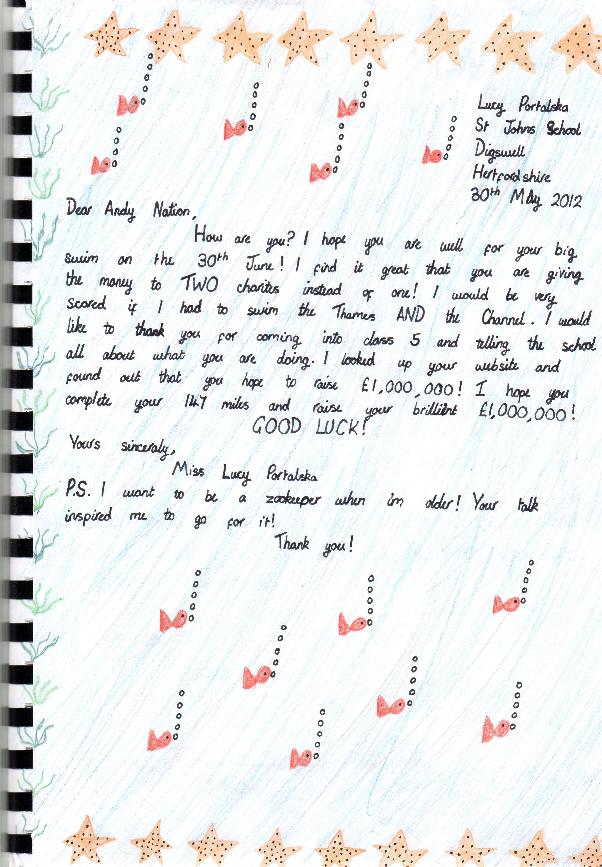 Lucy Portalska
St Johns School
Digswell
Hertfordshire
30th May 2012
Dear Andy Nation,
How are you? I hope you are well for your big
swim on the 30th June! I find it great that you are giving
the money to TWO charites instead of one! I would be very
scared if I had to swim the Thames AND the Channel. I would
like to thank you for coming into class 5 and telling the school
all about what you are doing. I looked up your website and
found out that you hope to raise £1,000,000! I hope you
complete your 147 miles and raise your brillient £1,000,000!
GOOD LUCK!
Yours sinceraly,
Miss Lucy Portalska
P.S. I want to be a zookeeper when im older! Your talk
inspired me to go for it!
Thank you!